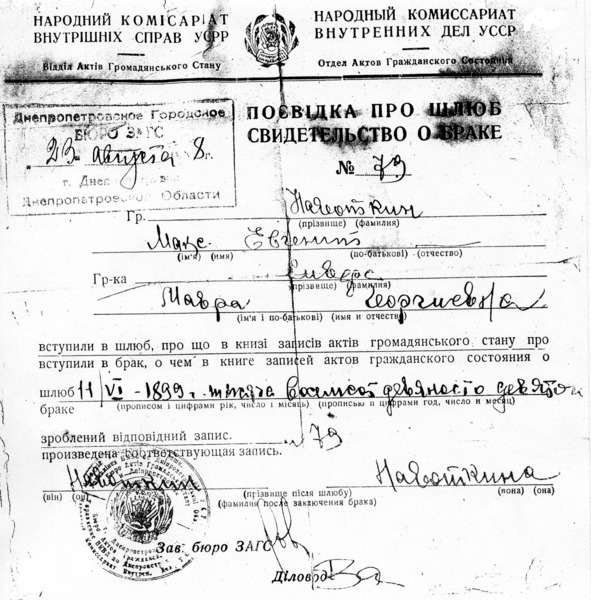 НАРОДНИЙ КОМІСАРІАТ
ВНУТРІШНІХ СПРАВ УСРР
Відділ Актів Громадянського Стану
НАРОДНЫЙ КОМИССАРИАТ
ВНУТРЕННИХ ДЕЛ УССР
Отдел Актов Гражданского Состояния
Днепропетровское Городское
БЮРО ЗАГС
"23" августа 8г.
г. Днеп
Днепропетровской Области
ПОСВІДКА ПРО ШЛЮБ
СВИДЕТЕЛЬСТВО О БРАКЕ
№ 79
Гр.
(прізвище) (фамилия)
Макс Евгений
(ім'я) (имя) по-батькові) (отчество)
Гр-ка
(прізвище) (фамилия)
Мавра Георгиевна
(ім'я і по-батькові) (имя и отчество)
вступили в шлюб, про що в книзі записів актів громадянського стану про
вступили в брак, о чем в книге записей актов гражданского состояния о
шлюб 11/VI - 1899 г. тысяча восемсот девяносто девятого
браке (прописом і цифрами рік, число і місяць) (прописью и цифрами год, число и месяц)
зроблений відповідний запис. 79
произведена соответствующая запись.
(він) (он) (прізвище після шлюбу) (вона) (она)
(фамилия после заключения брака)
Зав. бюро ЗАГС
Діловод